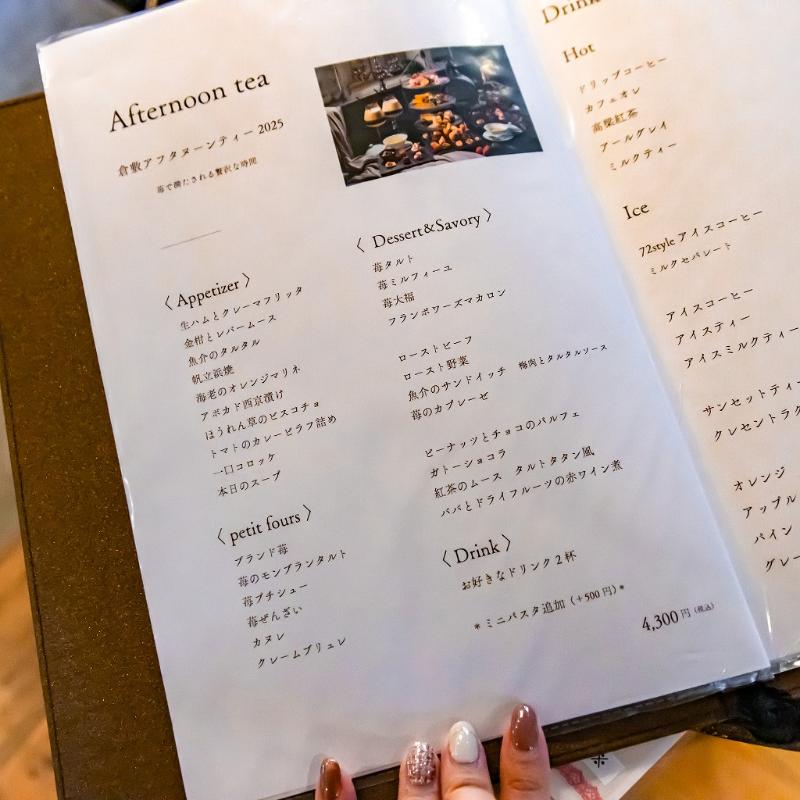 Afternoon tea
倉敷アフタヌーンティー 2025
苺で満たされる贅沢な時間
〈 Appetizer 〉
生ハムとクレーマフリッタ
金柑とレバームース
魚介のタルタル
帆立浜焼
海老のオレンジマリネ
アボカド西京漬け
ほうれん草のビスコチョ
トマトのカレーピラフ詰め
一口コロッケ
本日のスープ
〈 petit fours 〉
ブランド苺
苺のモンブランタルト
苺プチシュー
苺ぜんざい
カヌレ
クレームブリュレ
〈 Dessert&Savory 〉
苺タルト
苺ミルフィーユ
苺大福
フランボワーズマカロン
ローストビーフ
ロースト野菜
魚介のサンドイッチ 梅肉とタルタルソース
苺のカプレーゼ
ピーナッツとチョコのパルフェ
ガトーショコラ
紅茶のムース タルトタタン風
ババとドライフルーツの赤ワイン煮
〈 Drink 〉
お好きなドリンク2杯
*ミニパスタ追加(+500円)*
4,300円(税込)
Drink
Hot
ドリップコーヒー
カフェオレ
高梁紅茶
アールグレイ
ミルクティー
Ice
72style アイスコーヒー
ミルクセパレート
アイスコーヒー
アイスティー
アイスミルクティー
サンセットティー
クレセントラ
オレンジ
アップル
パイン
グレー